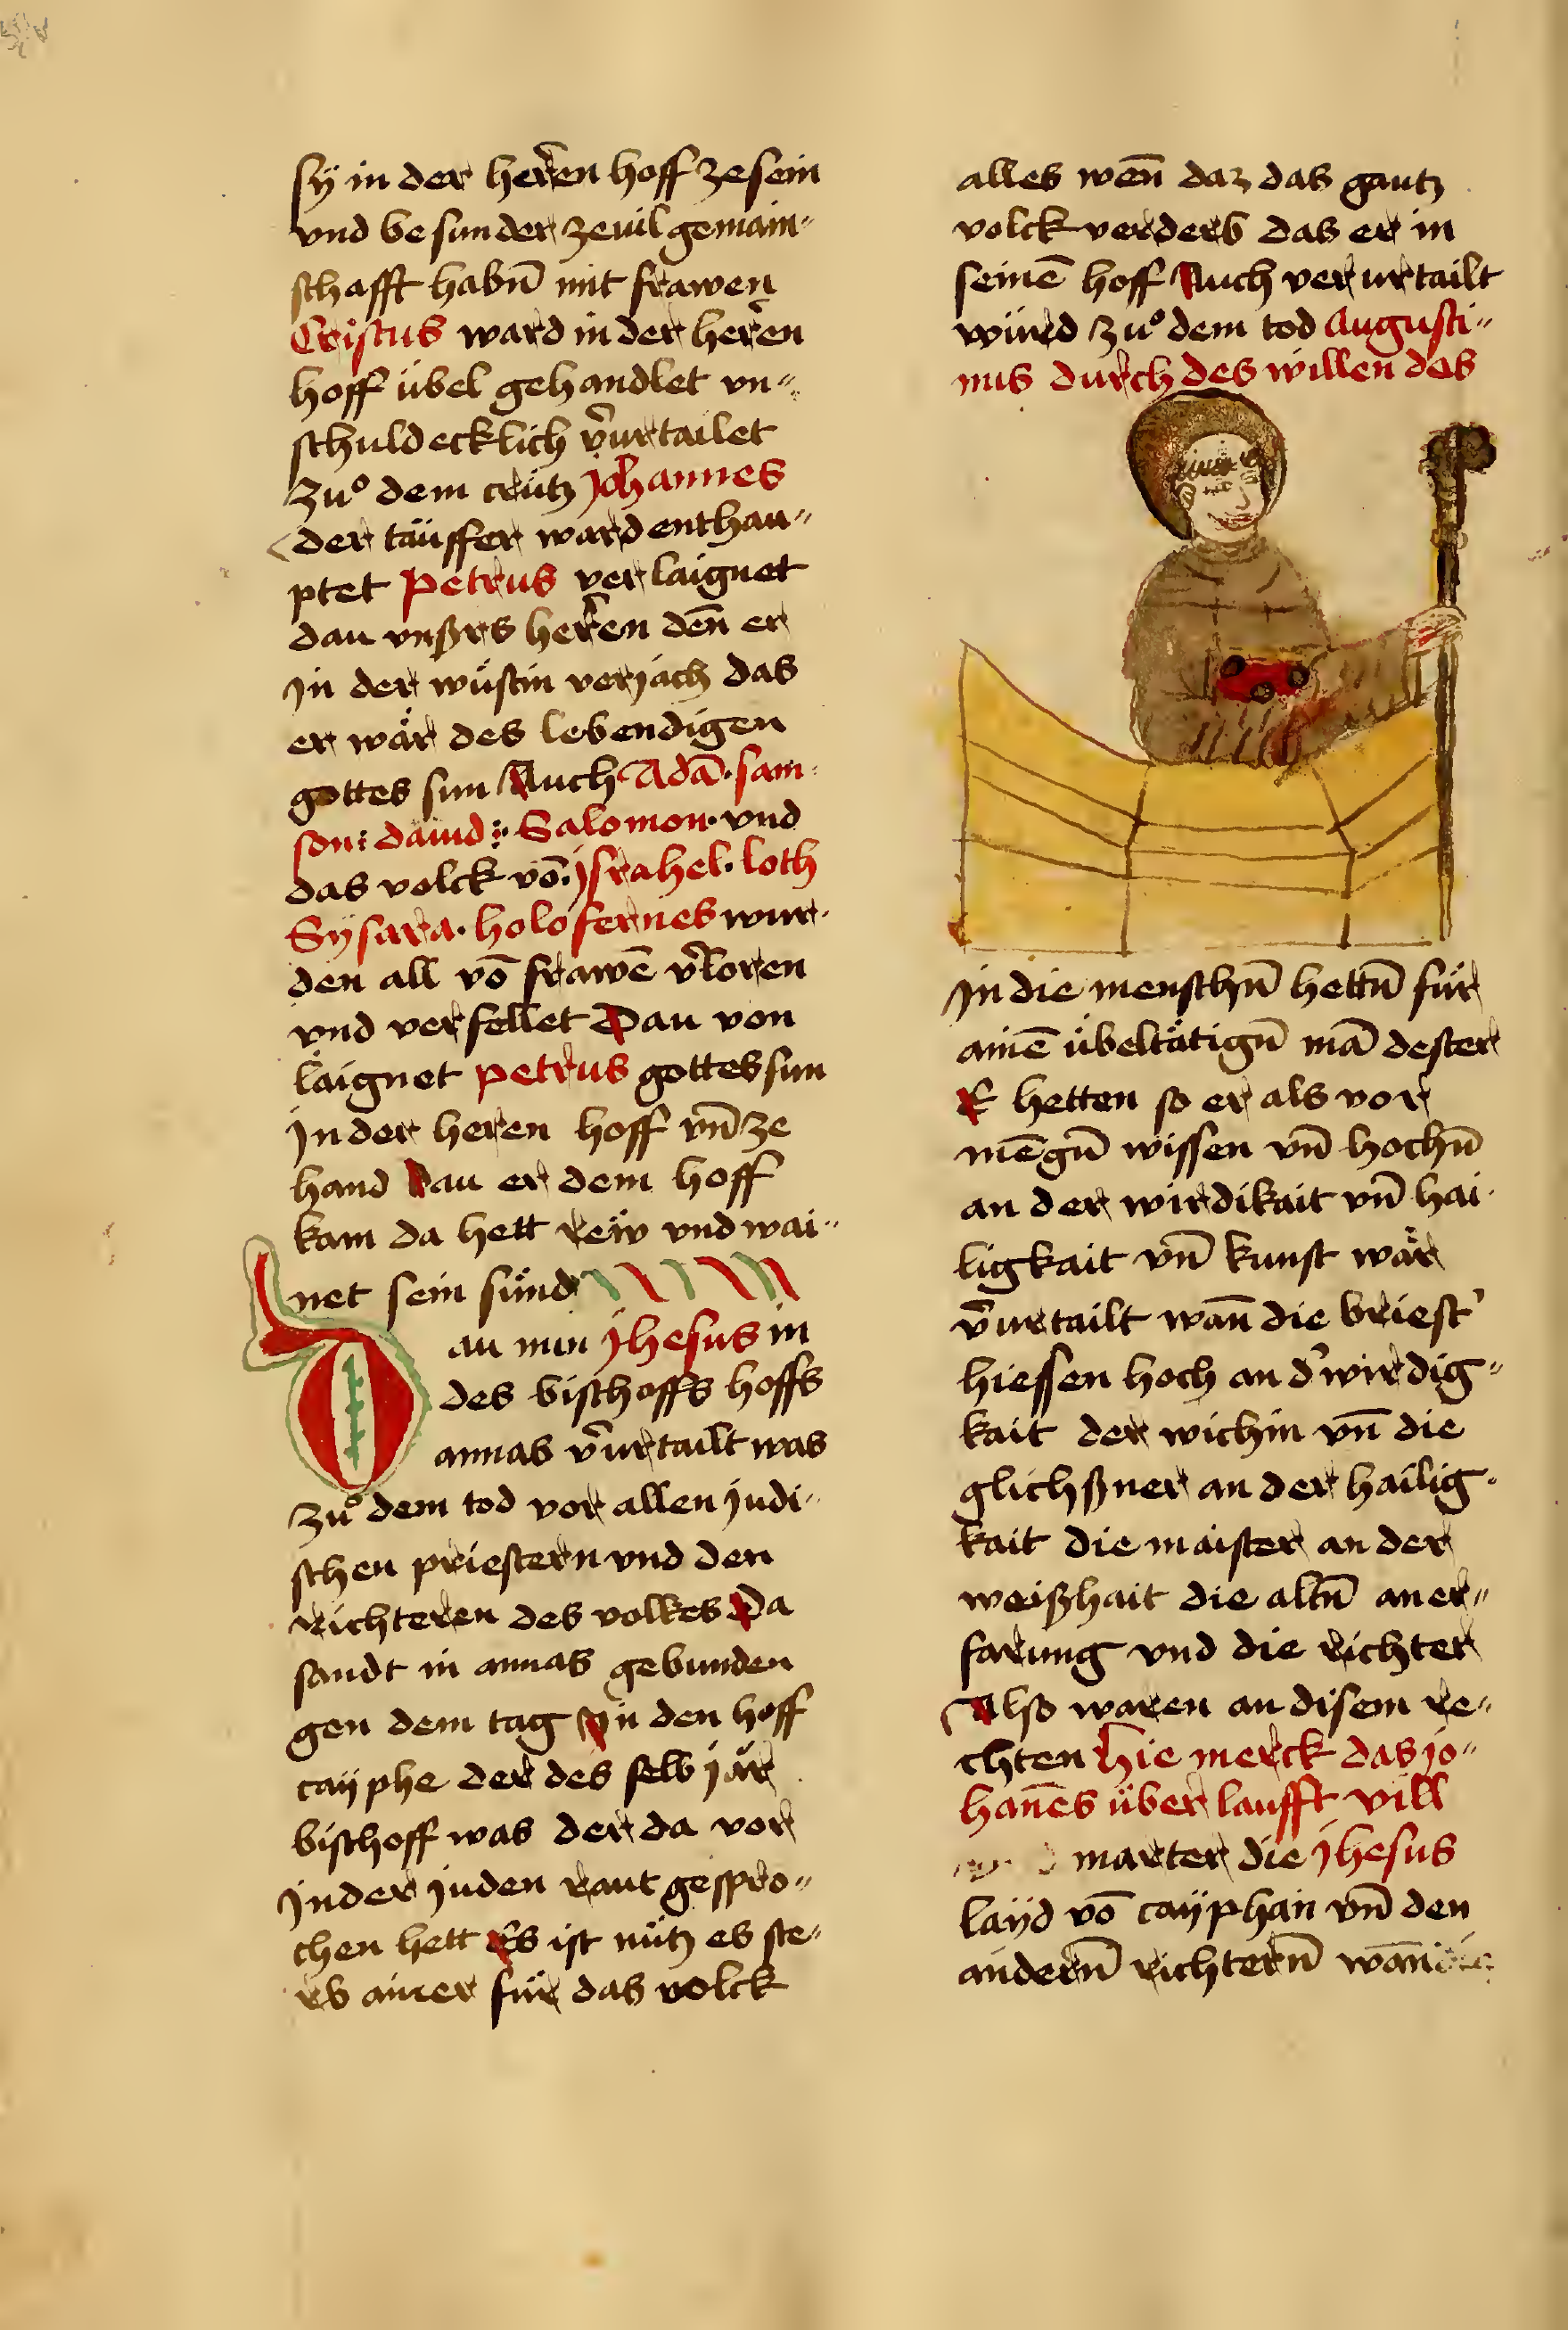 sy in der herren hoff ze sein
vnd besunder zeuil gemain〃
schafft habn̄ mit frawen
Cristus ward in der herren
hoff übel gehandlet vn〃
schuldecklich v̄urtailet
zuͦ dem crütz Johannes
der täuffer ward enthau〃
ptet Petrus verlaignet
dau vnßrs herren den̄ er
in der wüstin verjach das
er wär des lebendigen
gottes sun Auch Adā · sam
son : dauid : Salomon · vnd
das volck vō · jsrahel · loth
Sysara · holofernes wur
den all vō frawē v̄loren
vnd verfellet Dau von
laignet petrus gottes sun
jn der heren hoff vn̄ ze
hand Dau er dem hoff
kam da hett rëw vnd wai〃
net sein sünd
Dau nun jhesus in
des bischoffs hoffs
annas v̄urtailt was
zuͦ dem tod vor allen judi〃
schen priestern vnd den
richteren des volkes Da
sandt in annas gebunden
gen dem tag jn den hoff
cayphe der des selb jär
bischoff was der da vor
jn der juden raut gespro〃
chen hett Es ist nütz es ste〃
rb ainer für das volck
alles wen̄ daz das gantz
volck verderb das er in
seinē hoff Auch verurtailt
würd zuͦ dem tod Augusti〃
nus durch des willen das
jn die menschn̄ hettn̄ für
ainē übeltätign̄ mā dester
E hetten so er als vor
mēgn̄ wissen vn̄ hochn̄
an der wirdikait vn̄ hai
ligkait vn̄ kunst wär
v̄urtailt wan̄ die briest'
hiessen hoch an d' wirdig〃
kait der wichin vn̄ die
glichßner an der hailig
kait die maister an der
weißhait die altn̄ an er〃
farung vnd die richter
Also waren an disem re〃
chten hie merck das jo〃
han̄es über laufft vill
marter die jhesus
layd vō cayphan vn̄ den
andern̄ richtern̄ wan̄